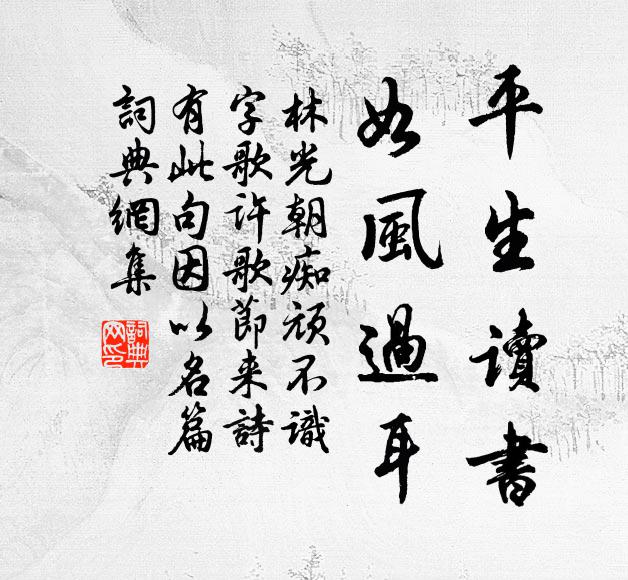 平生讀書
如風過耳
林光朝痴頑不識
字歌许歌節来詩
有此句因以名篇
詞典網集
詞典
网印